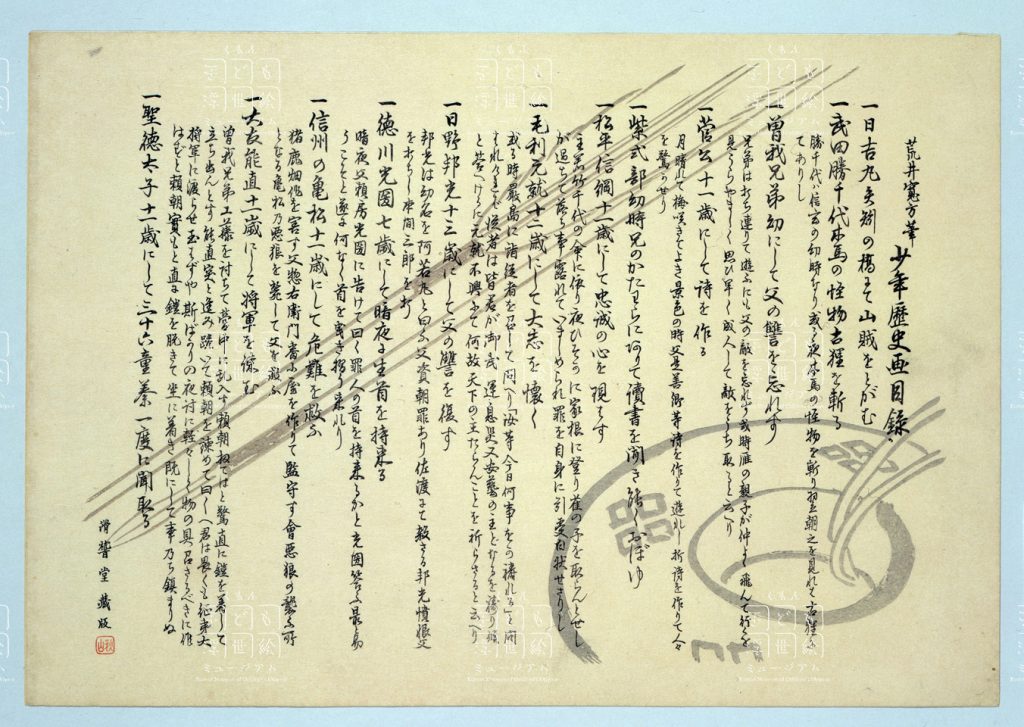 荒井寛方筆 少年歴史画目録
一日吉丸矢矧の橋にて山賊をとがむ
一武田勝千代木馬の怪物古狸を斬る
勝千代は信玄の幼時なり或る夜木馬の怪物を斬り翌朝之を見れば古狸に
てありし
一曽我兄弟幼にして父の讐を忘れず
兄弟は打ち連りて遊ぶにも父の敵を忘れず或時雁の親子が仲よく飛んで行くを
見てうらやましく思ひ早く成人して敵をうち取らんと
一菅公十一歳にして詩を作る
月晴れて梅咲きてよき景色の時父是善卿等詩を作りて遊れし折詩を作りて人々
を驚かせり
一紫式部幼時兄のかたはらに何りて読書を聞き能くおぼゆ
一松平信綱十一歳にして忠誠の心を現はす
主君竹千代の命に依り夜ひそかに家根に登り雀の子を取らんとせし
が過ちて落ち事露れていましめられ罪を自身に引受白状せざりし
一毛利元就十二歳にして大志を懐く
或る時厳島に詣従者を召して問へり「汝等今日何事をか祷れる」と問
それに従者は皆君が御武運長久又安芸の主となるを祷り候
と答へけるに元就不興にて何故天下の主たらんことを祈らざると云へり
一日野邦光十三歳にして父の讐を復す
邦光は幼名を阿若丸と曰ふ父資朝罪あり佐渡にて殺さる邦光憤恨父
をあらし本間三郎をあり
一徳川光圀七歳にして暗夜に生首を持来る
暗夜父頼房光圀に告けて曰く罪人の首を持来るかと光圀答ふ最易
うことと遂に何なく首を曳き摺り来れり
一信州の亀松十一歳にして危難を救ふ
猪鹿畑作を害す父惣右衛門番小屋を作りて監守す會悪狼の襲ふ所
となる亀松乃悪狼を斃して父を救ふ
一大友能直十一歳にして将軍を諫む
曽我兄弟工藤を討ちて営中に乱入す頼朝ねてはと驚直に鎧を着して
立ち出んとす能直突と進み跪いて頼朝を諫めて曰く「君は畏くも征夷大
将軍に渡らせ玉はずや斯ばかりの夜討に軽々しく物の具召さるべきに作
はず」と頼朝実もと直に鎧を脱ぎて坐に着き既にして事乃ち鎮まりぬ
一聖徳太子十一歳にして三十六童奏一度に聞取る
滑稽堂蔵版
秋山